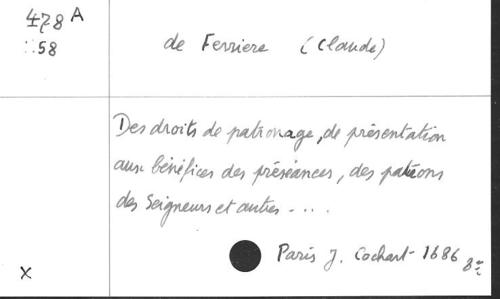 478 A
::58
de Ferriere (Claude)
Des droits de patronage, de présentation
aux bénéfices des préséances, des patrons
des Seigneurs et autres ....
Paris J. Cochart 1686 8º
X